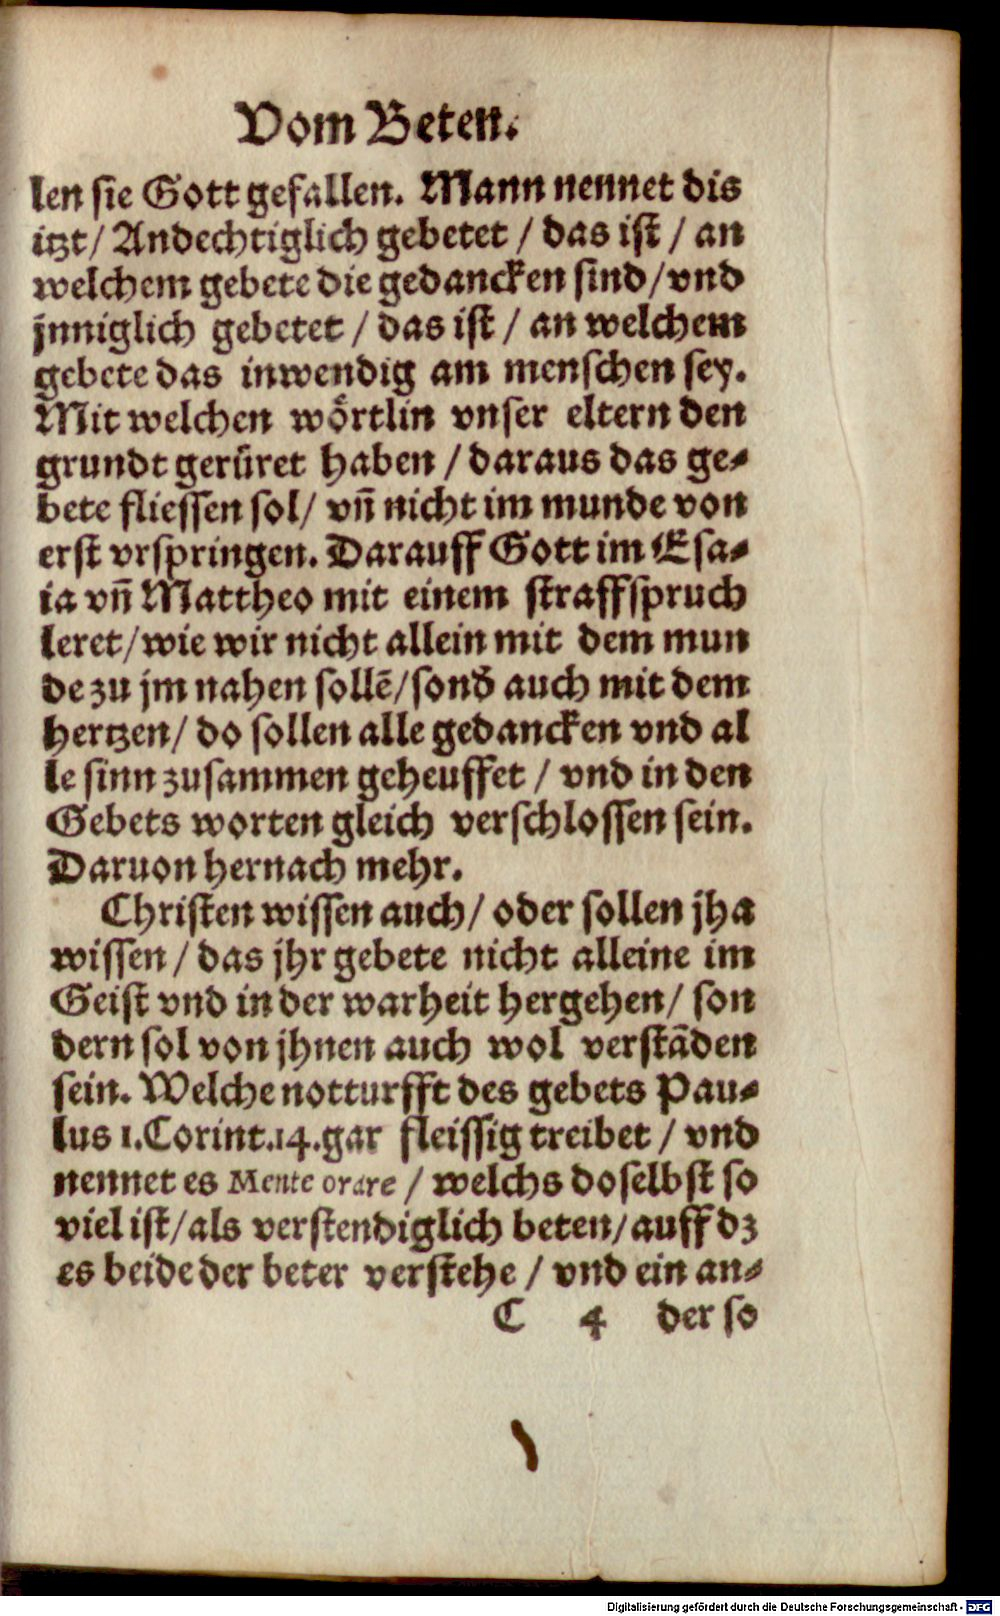 Vom Beten.
len sie Gott gefallen. Mann nennet dis
itzt/ Andechtiglich gebetet / das ist / an
welchem gebete die gedancken sind/vnd
jnniglich gebetet / das ist / an welchem
gebete das inwendig am menschen sey.
Mit welchen woͤrtlin vnser eltern den
grundt geruͤret haben / daraus das ge-
bete fliessen sol/ vn̄ nicht im munde von
erst vrspringen. Darauff Gott im Esa-
ia vn̄ Mattheo mit einem straffspruch
leret/wie wir nicht allein mit dem mun
de zu jm nahen sollē/sond̕ auch mit dem
hertzen/ do sollen alle gedancken vnd al
le sinn zusammen geheuffet / vnd in den
Gebets worten gleich verschlossen sein.
Daruon hernach mehr.
Christen wissen auch/ oder sollen jha
wissen / das jhr gebete nicht alleine im
Geist vnd in der warheit hergehen/ son
dern sol von jhnen auch wol verstāden
sein. Welche notturfft des gebets Pau-
lus 1.Corint.14.gar fleissig treibet / vnd
nennet es Mente orare / welchs doselbst so
viel ist/als verstendiglich beten/auff dz
es beide der beter verstehe / vnd ein an-
C 4 der so
Digitalisierung gefördert durch die Deutsche Forschungsgemeinschaft - DFG